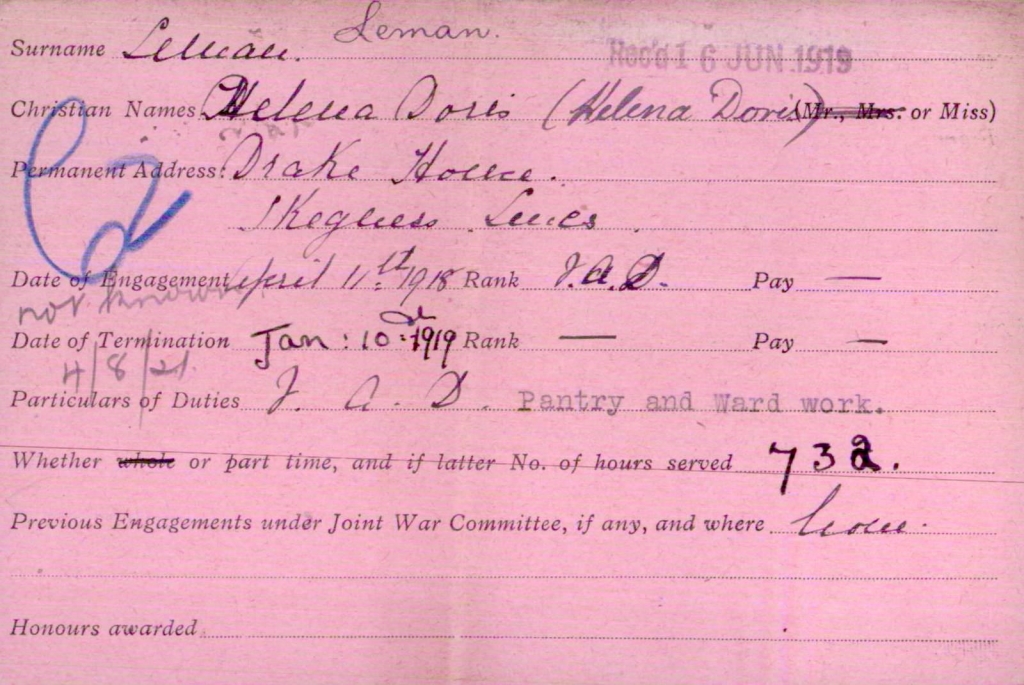 Leman.
Surname Leman. Rec'd 16 JUN 1919
Christian Names Helena Doris (Helena Doris) (Mr., Mrs. or Miss)
Permanent Address: Drake House.
Skegness Lincs.
Date of Engagement April 11th 1918 Rank V.A.D. Pay —
not known
Date of Termination Jan: 10th 1919 Rank — Pay —
4/8/21
Particulars of Duties V. A. D. Pantry and Ward work.
Whether whole or part time, and if latter No. of hours served 732.
Previous Engagements under Joint War Committee, if any, and where None.
Honours awarded